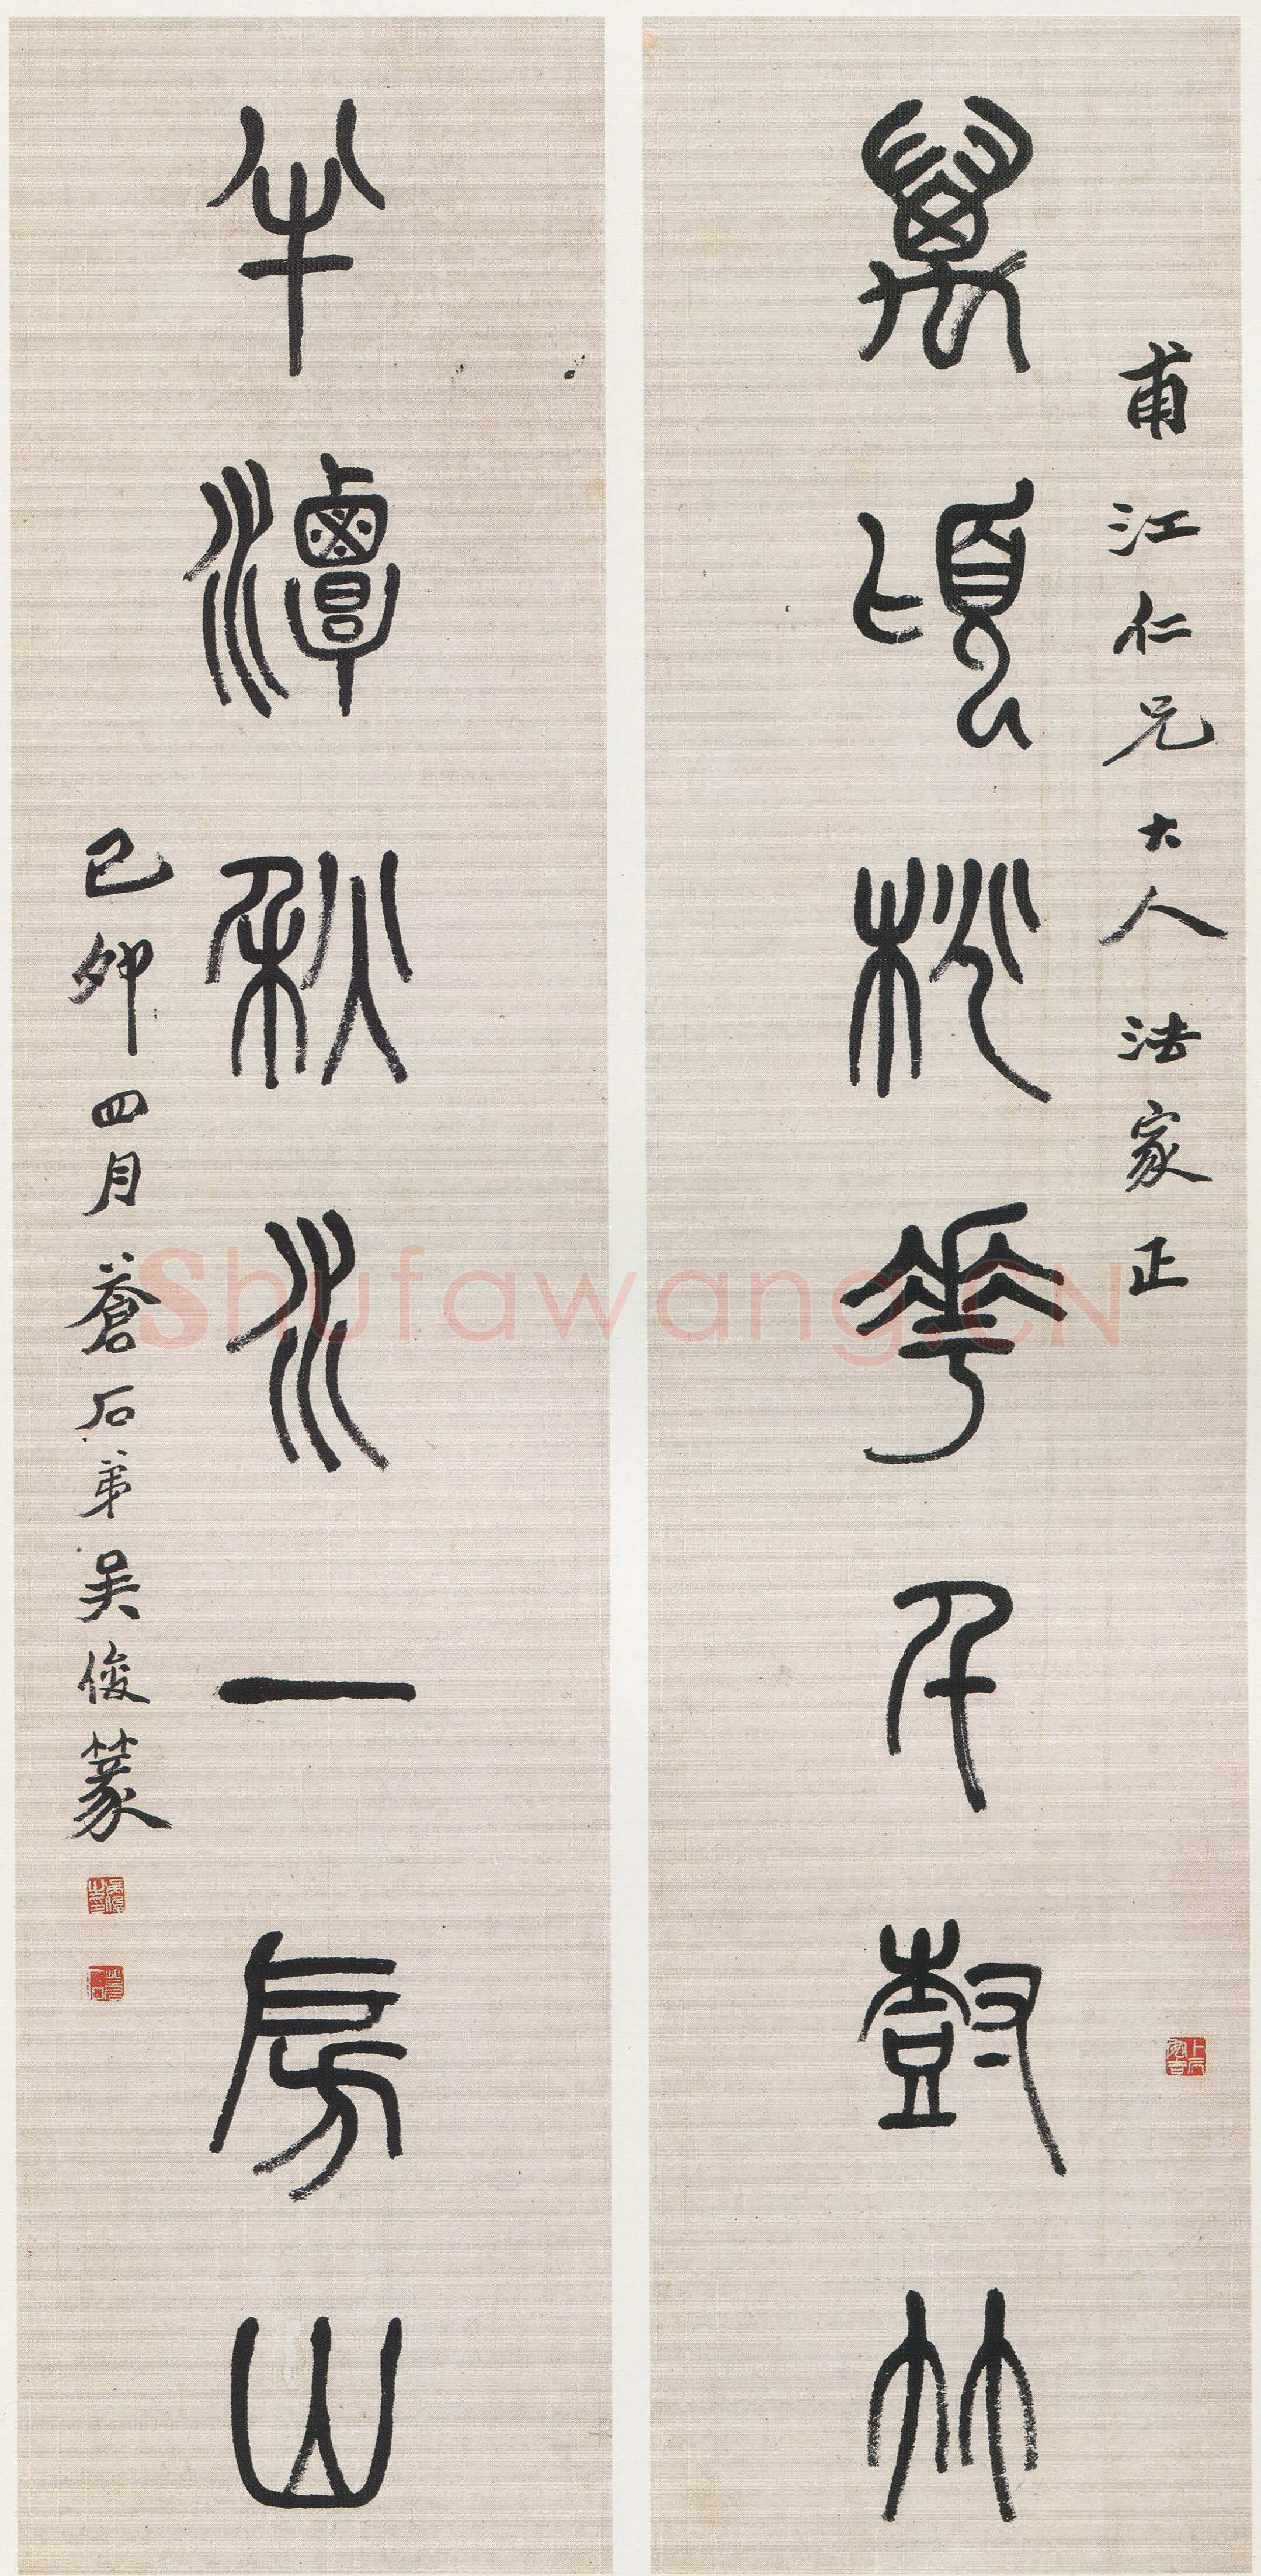 甫江仁兄大人法家正
萬頃桃華千尌竹
半潭秋水一房山
己卯四月蒼石弟吳俊篆
Shufawang.CN